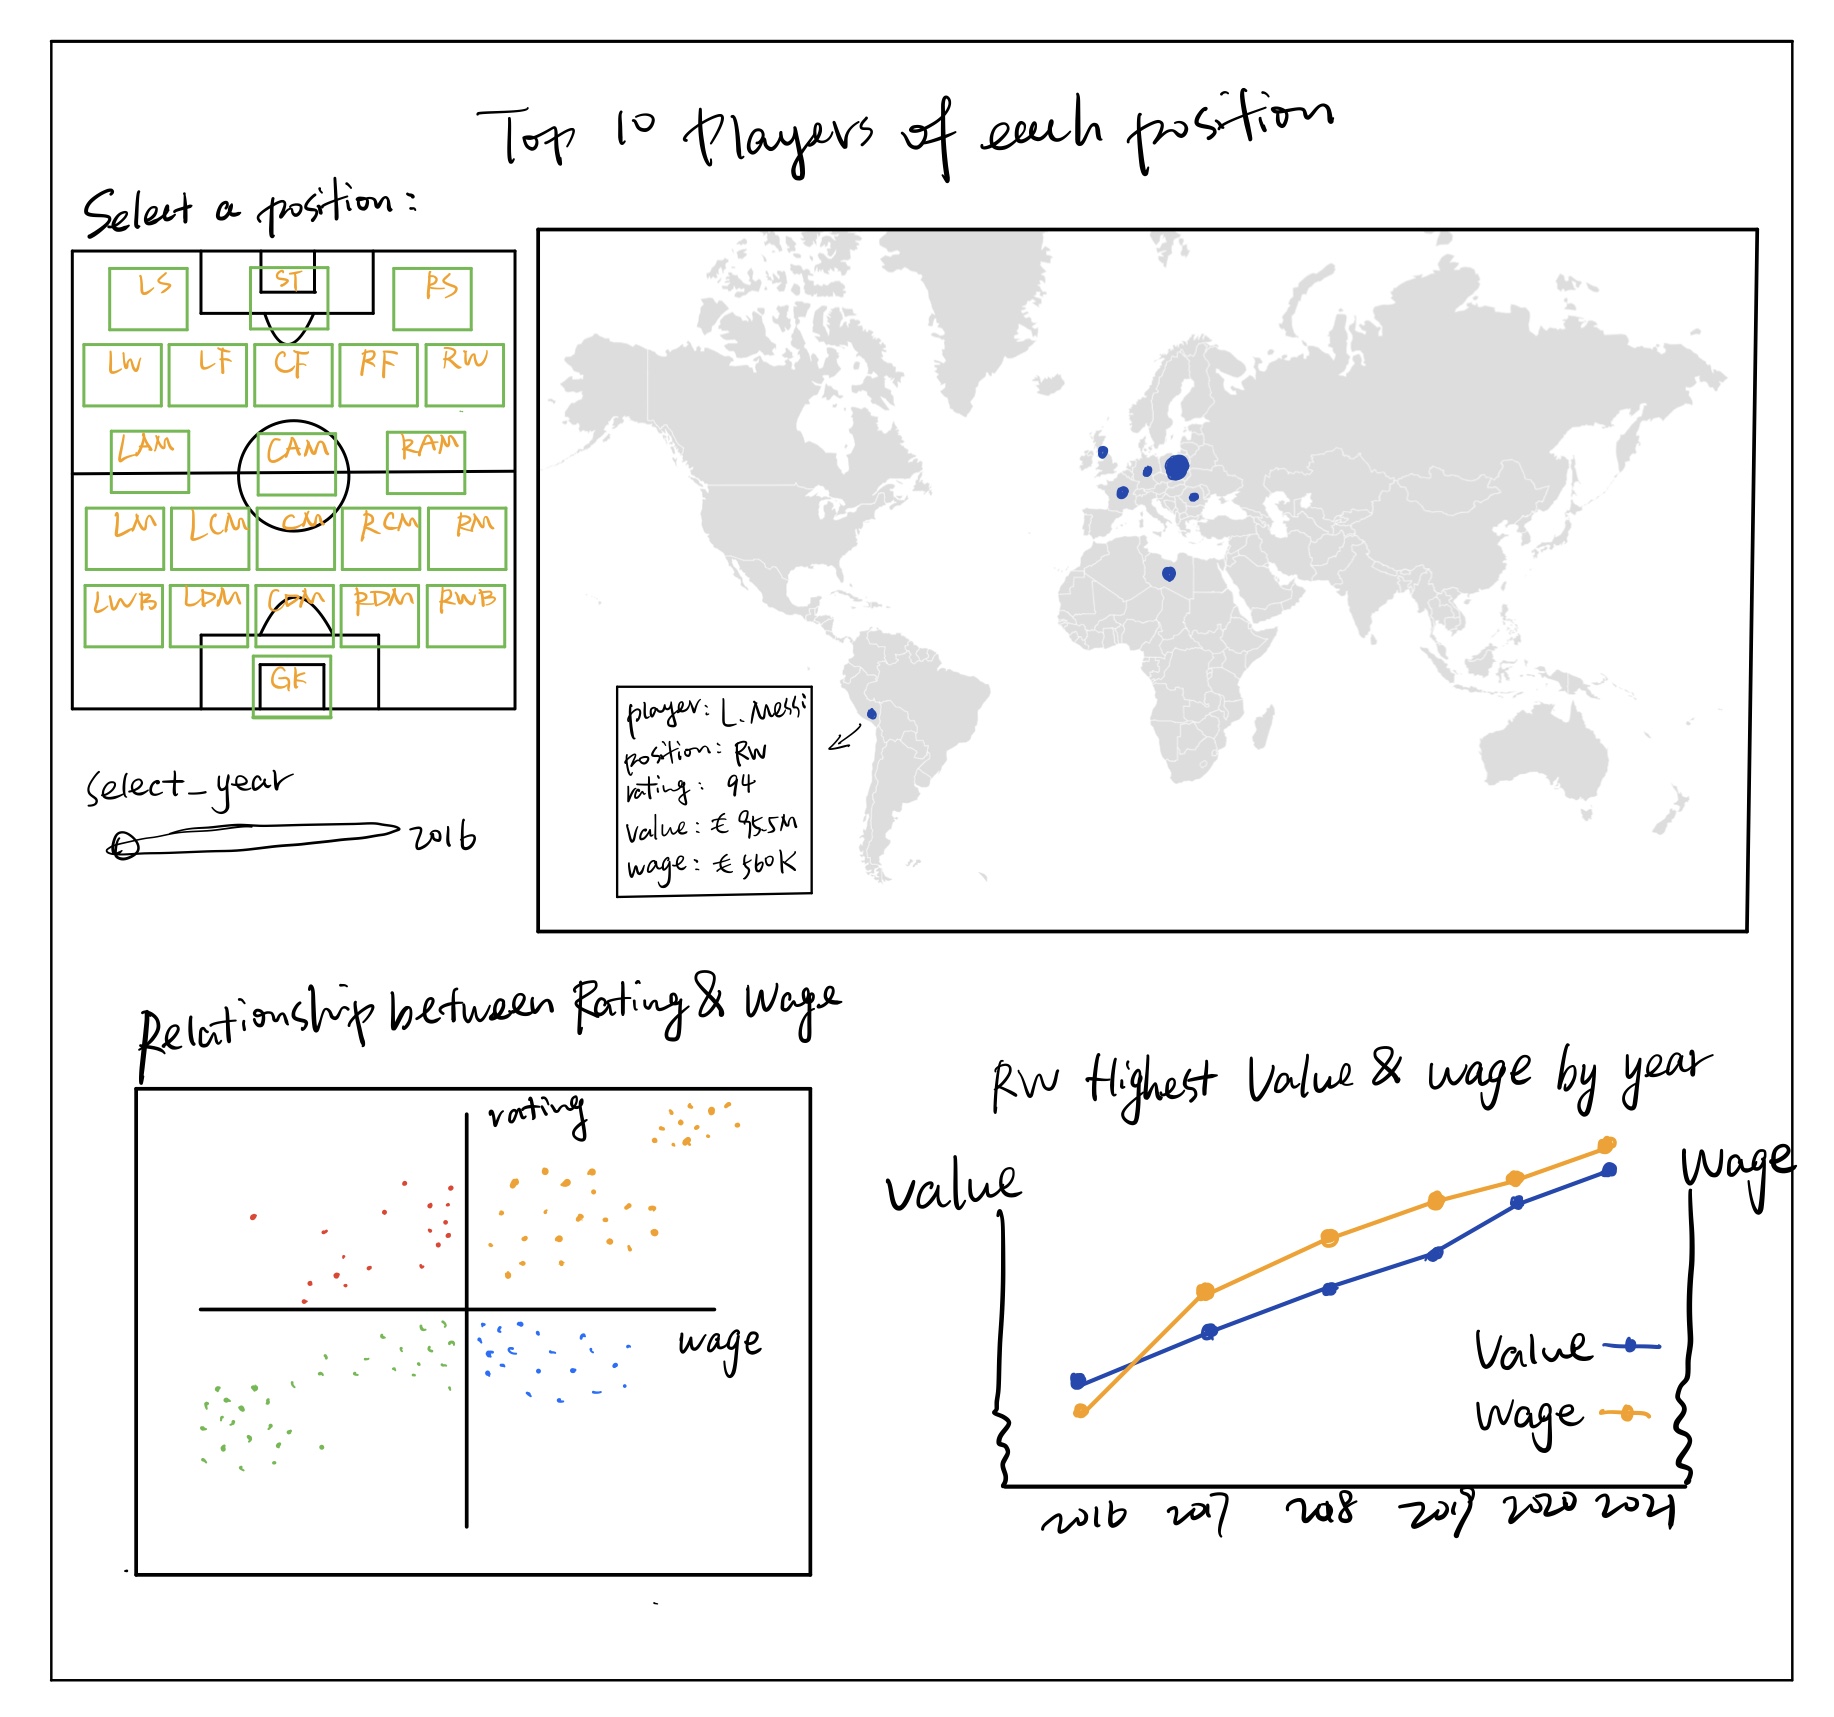 Top 10 players of each position
Select a position:
LS ST RS
LW LF CF RF RW
LAM CAM RAM
LM LCM CM RCM RM
LWB LDM CDM RDM RWB
GK
select_year
2016
player: L. Messi
position: RW
rating: 94
value: € 95.5M
wage: € 560K
Relationship between Rating & Wage
rating
wage
RW Highest Value & wage by year
Value
Wage
Value
Wage
2016 2017 2018 2019 2020 2021